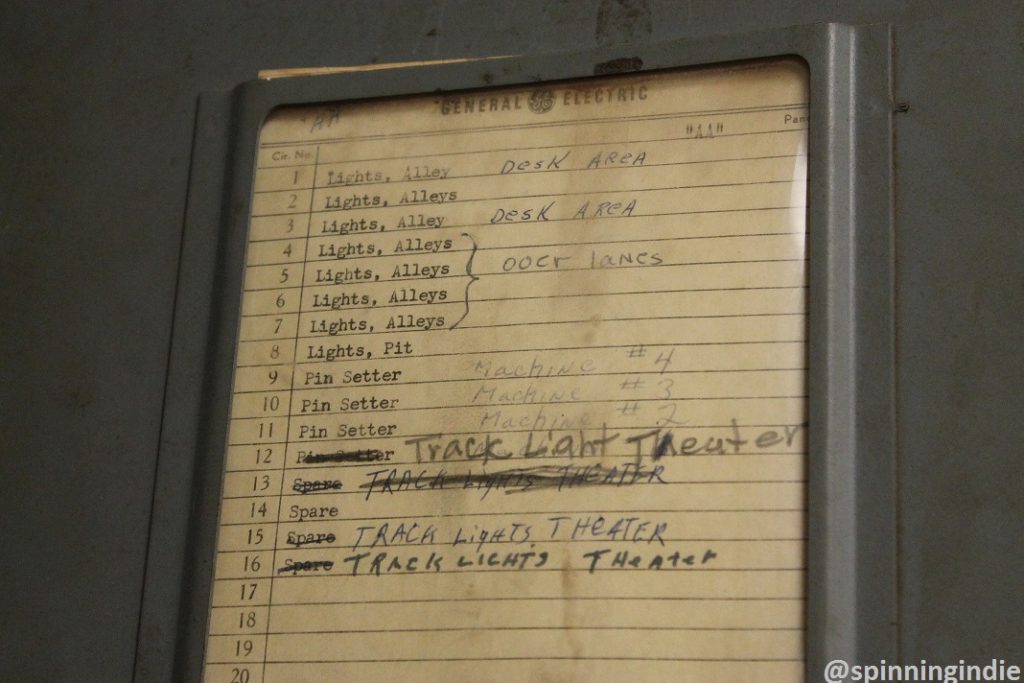 "AA"
GENERAL GE ELECTRIC
"AA"
Cir. No.
1 Lights, Alley Desk AreA
2 Lights, Alleys
3 Lights, Alley Desk AreA
4 Lights, Alleys
5 Lights, Alleys over lanes
6 Lights, Alleys
7 Lights, Alleys
8 Lights, Pit
9 Pin Setter Machine #4
10 Pin Setter Machine #3
11 Pin Setter Machine #2
12 Pin Setter Track Light Theater
13 Spare TRACK LigHTS THEATER
14 Spare
15 Spare TRACK LigHTS THEATER
16 Spare TRACK LIGHTS THeAter
17
18
19
20
@spinningindie